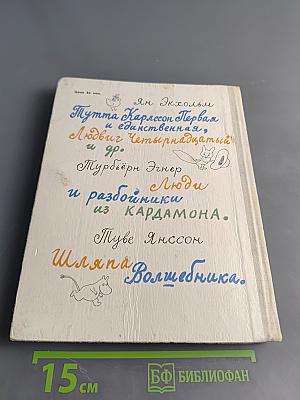 Ян Экхольм
Тутта Карлссон Первая
и единственная,
Людвиг Четырнадцатый
и др.
Турбьёрн Эгнер
Люди
и разбойники
из КАРДАМОНА.
Туве Янссон
Шляпа
Волшебника.
15 см
БФ БИБЛИОФАН